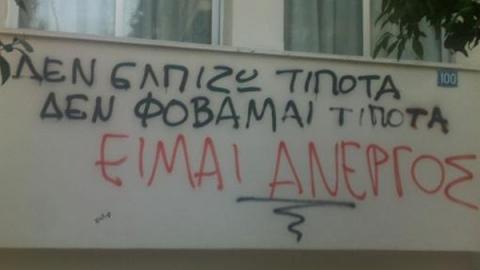 ΔΕΝ ΕΛΠΙΖω ΤΙΠΟΤΑ
100
ΔΕΝ ΦΟΒΑΜΑΙ ΤΙΠΟΤΑ
ΕΙΜΑΙ ΑΝΕΡΓΟΣ